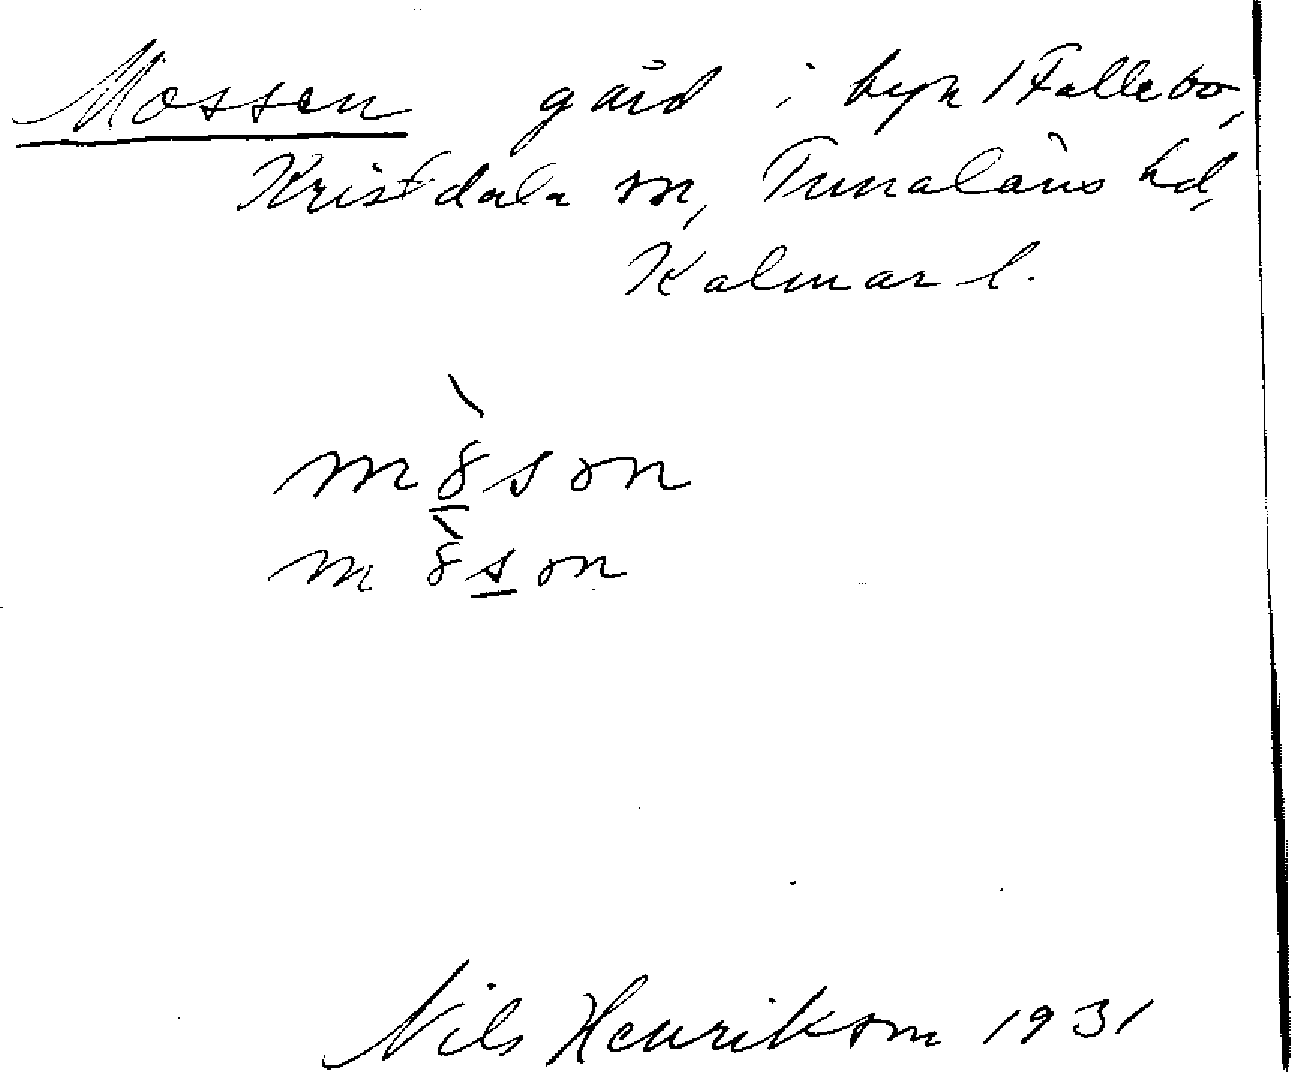 Mossen gård i byn Fallebo,
Kristdala sn, Tunaläns hd,
Kalmar l.
mò̲son
mòs̲on
Nils Henrikson 1931